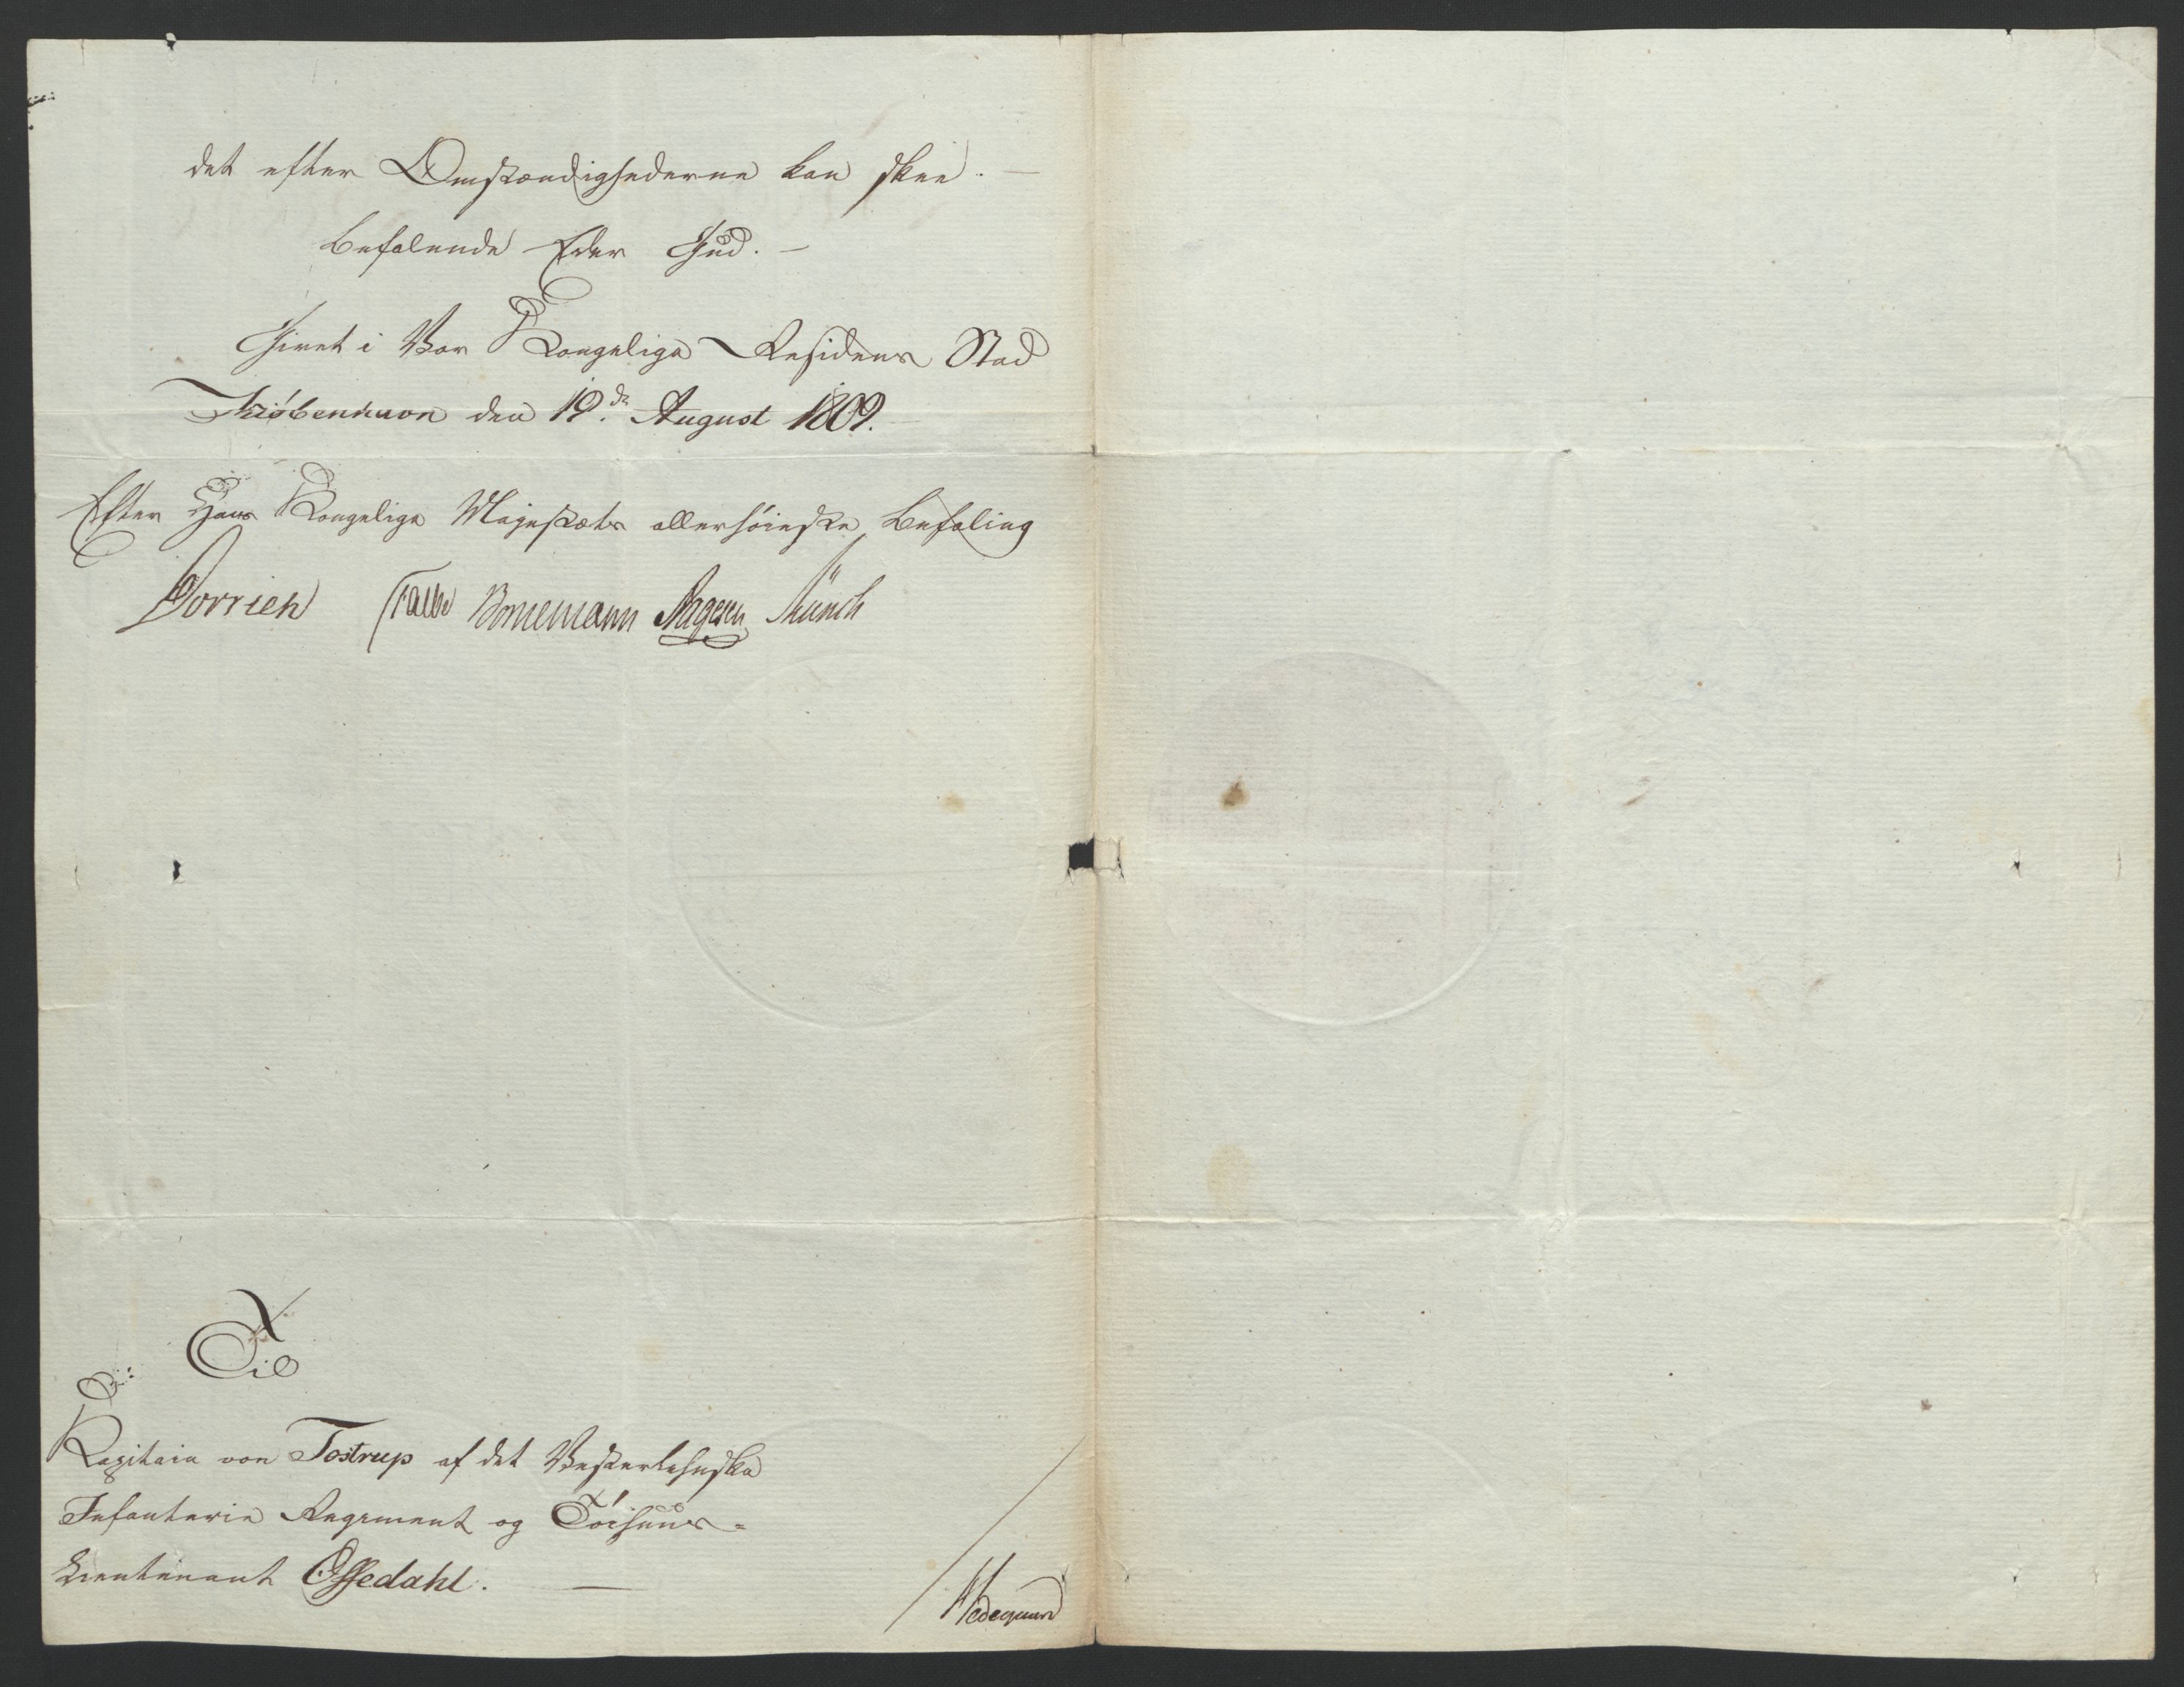 det efter Omstændighederne kan skee. —
Befalende Eder Gud. —
Givet i Vor Kongelige Residens Stad
Kiøbenhavn den 19de August 1809.
Efter Hans Kongelige Majestæts allerhøieste Befaling
Dorrien Falbe Bornemann Aagesen Münch
Til
Kapitain von Tostrup af det Vesterlehnske
Infanterie Regiment og Tøihuus-
Lieutenant Offedahl. —
Hedegaard